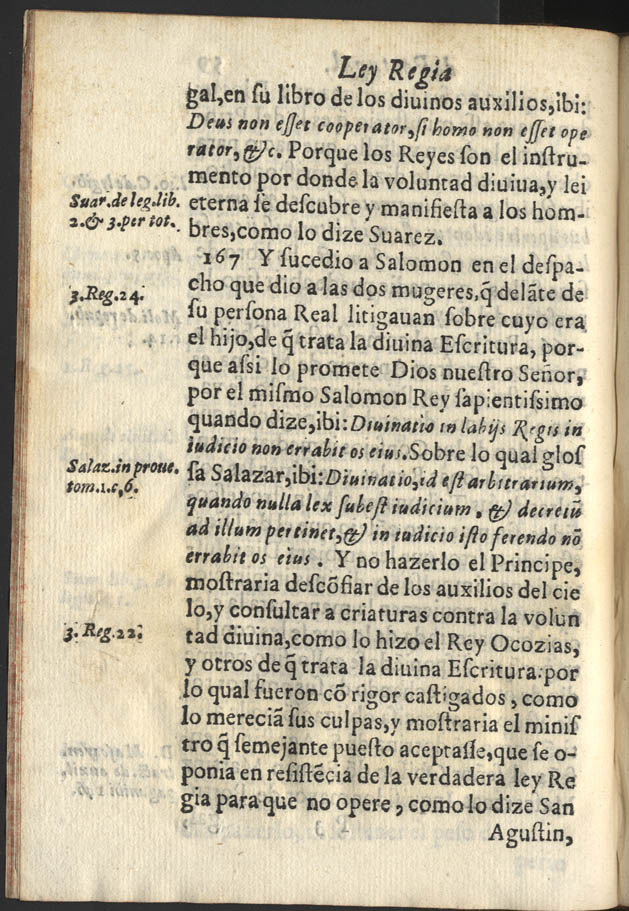 Ley Regia
gal,en ſu libro de los diuinos auxilios,ibi:
Deus non eſſet cooperator,ſi homo non eſſet ope
rator,&c. Porque los Reyes ſon el inſtru-
mento por donde la voluntad diuiua,y lei
Suar.de leg.lib.
eterna ſe deſcubre y manifieſta a los hom-
2.& 3.per tot.
bres,como lo dize Suarez.
167 Y ſucedio a Salomon en el deſpa-
cho que dio a las dos mugeres,q̃ delãte de
3.Reg.24.
ſu perſona Real litigauan ſobre cuyo era
el hijo,de q̃ trata la diuina Eſcritura, por-
que aſsi lo promete Dios nueſtro Señor,
por el miſmo Salomon Rey ſapientiſsimo
quando dize,ibi: Diuinatio in labijs Regis in
iudicio non errabit os eius. Sobre lo qual gloſ
Salaz.in proue.
tom.1.c,6.
ſa Salazar,ibi: Diuinatio,id eſt arbitrarium,
quando nulla lex ſubeſt iudicium, & decretũ
ad illum pertinet,& in iudicio iſto ferendo nõ
errabit os eius . Y no hazerlo el Principe,
moſtraria deſcõfiar de los auxilios del cie
lo,y conſultar a criaturas contra la volun
3. Reg.22.
tad diuina,como lo hizo el Rey Ocozias,
y otros de q̃ trata la diuina Eſcritura.por
lo qual fueron cõ rigor caſtigados , como
lo mereciã ſus culpas,y moſtraria el miniſ
tro q̃ ſemejante pueſto aceptaſſe,que ſe o-
ponia en reſiſtẽcia de la verdadera ley Re
gia para que no opere , como lo dize San
Aguſtin,